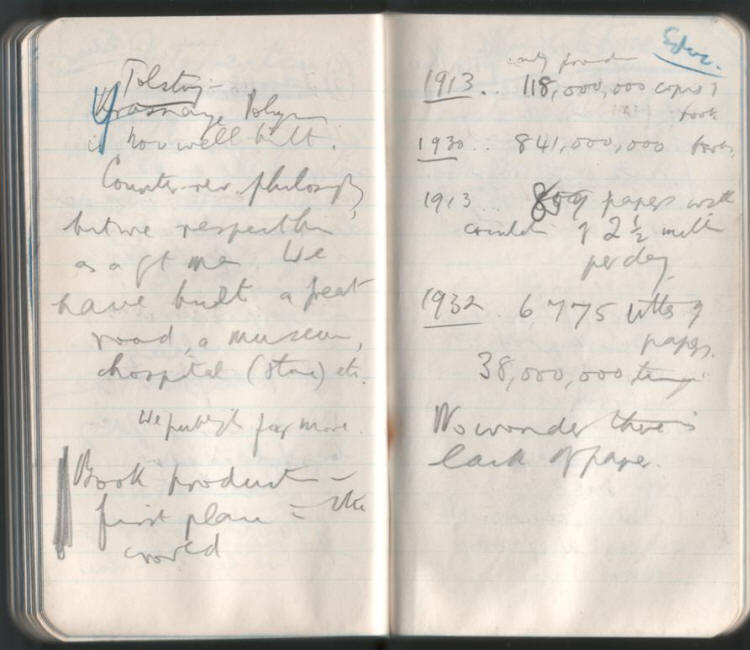 Tolstoy -
Yassnaya Polyana
is now well built.
Counter-rev philosophy,
but we respect him
as a gt man We
have built a great
road, a museum,
hospital (stone) etc.
We publish far more.
Book product –
first place = the
world
Educ.
1913.. 118,000,000 copies
books
1930.. 841,000,000 books.
1913 859 papers with
circulatn of 2½ mill
per day.
1932. 6,775 titles of
papers.
38,000,000
No wonder there is
lack of paper.